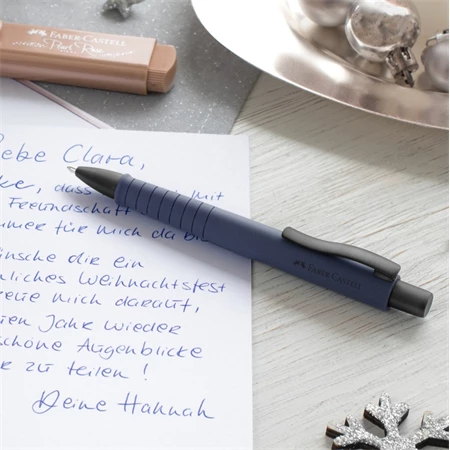 FABER-CASTELL
Pearl Rose
ebe Clara,
ke, dass mit
Freundschaft
mmer für mich da bi
nsche dir ein
nliches Weihnachtsfest
eue mich darauf,
uen Jahr wieder
schöne Augenblicke
r zu teilen!
Deine Hannah
FABER-CASTELL